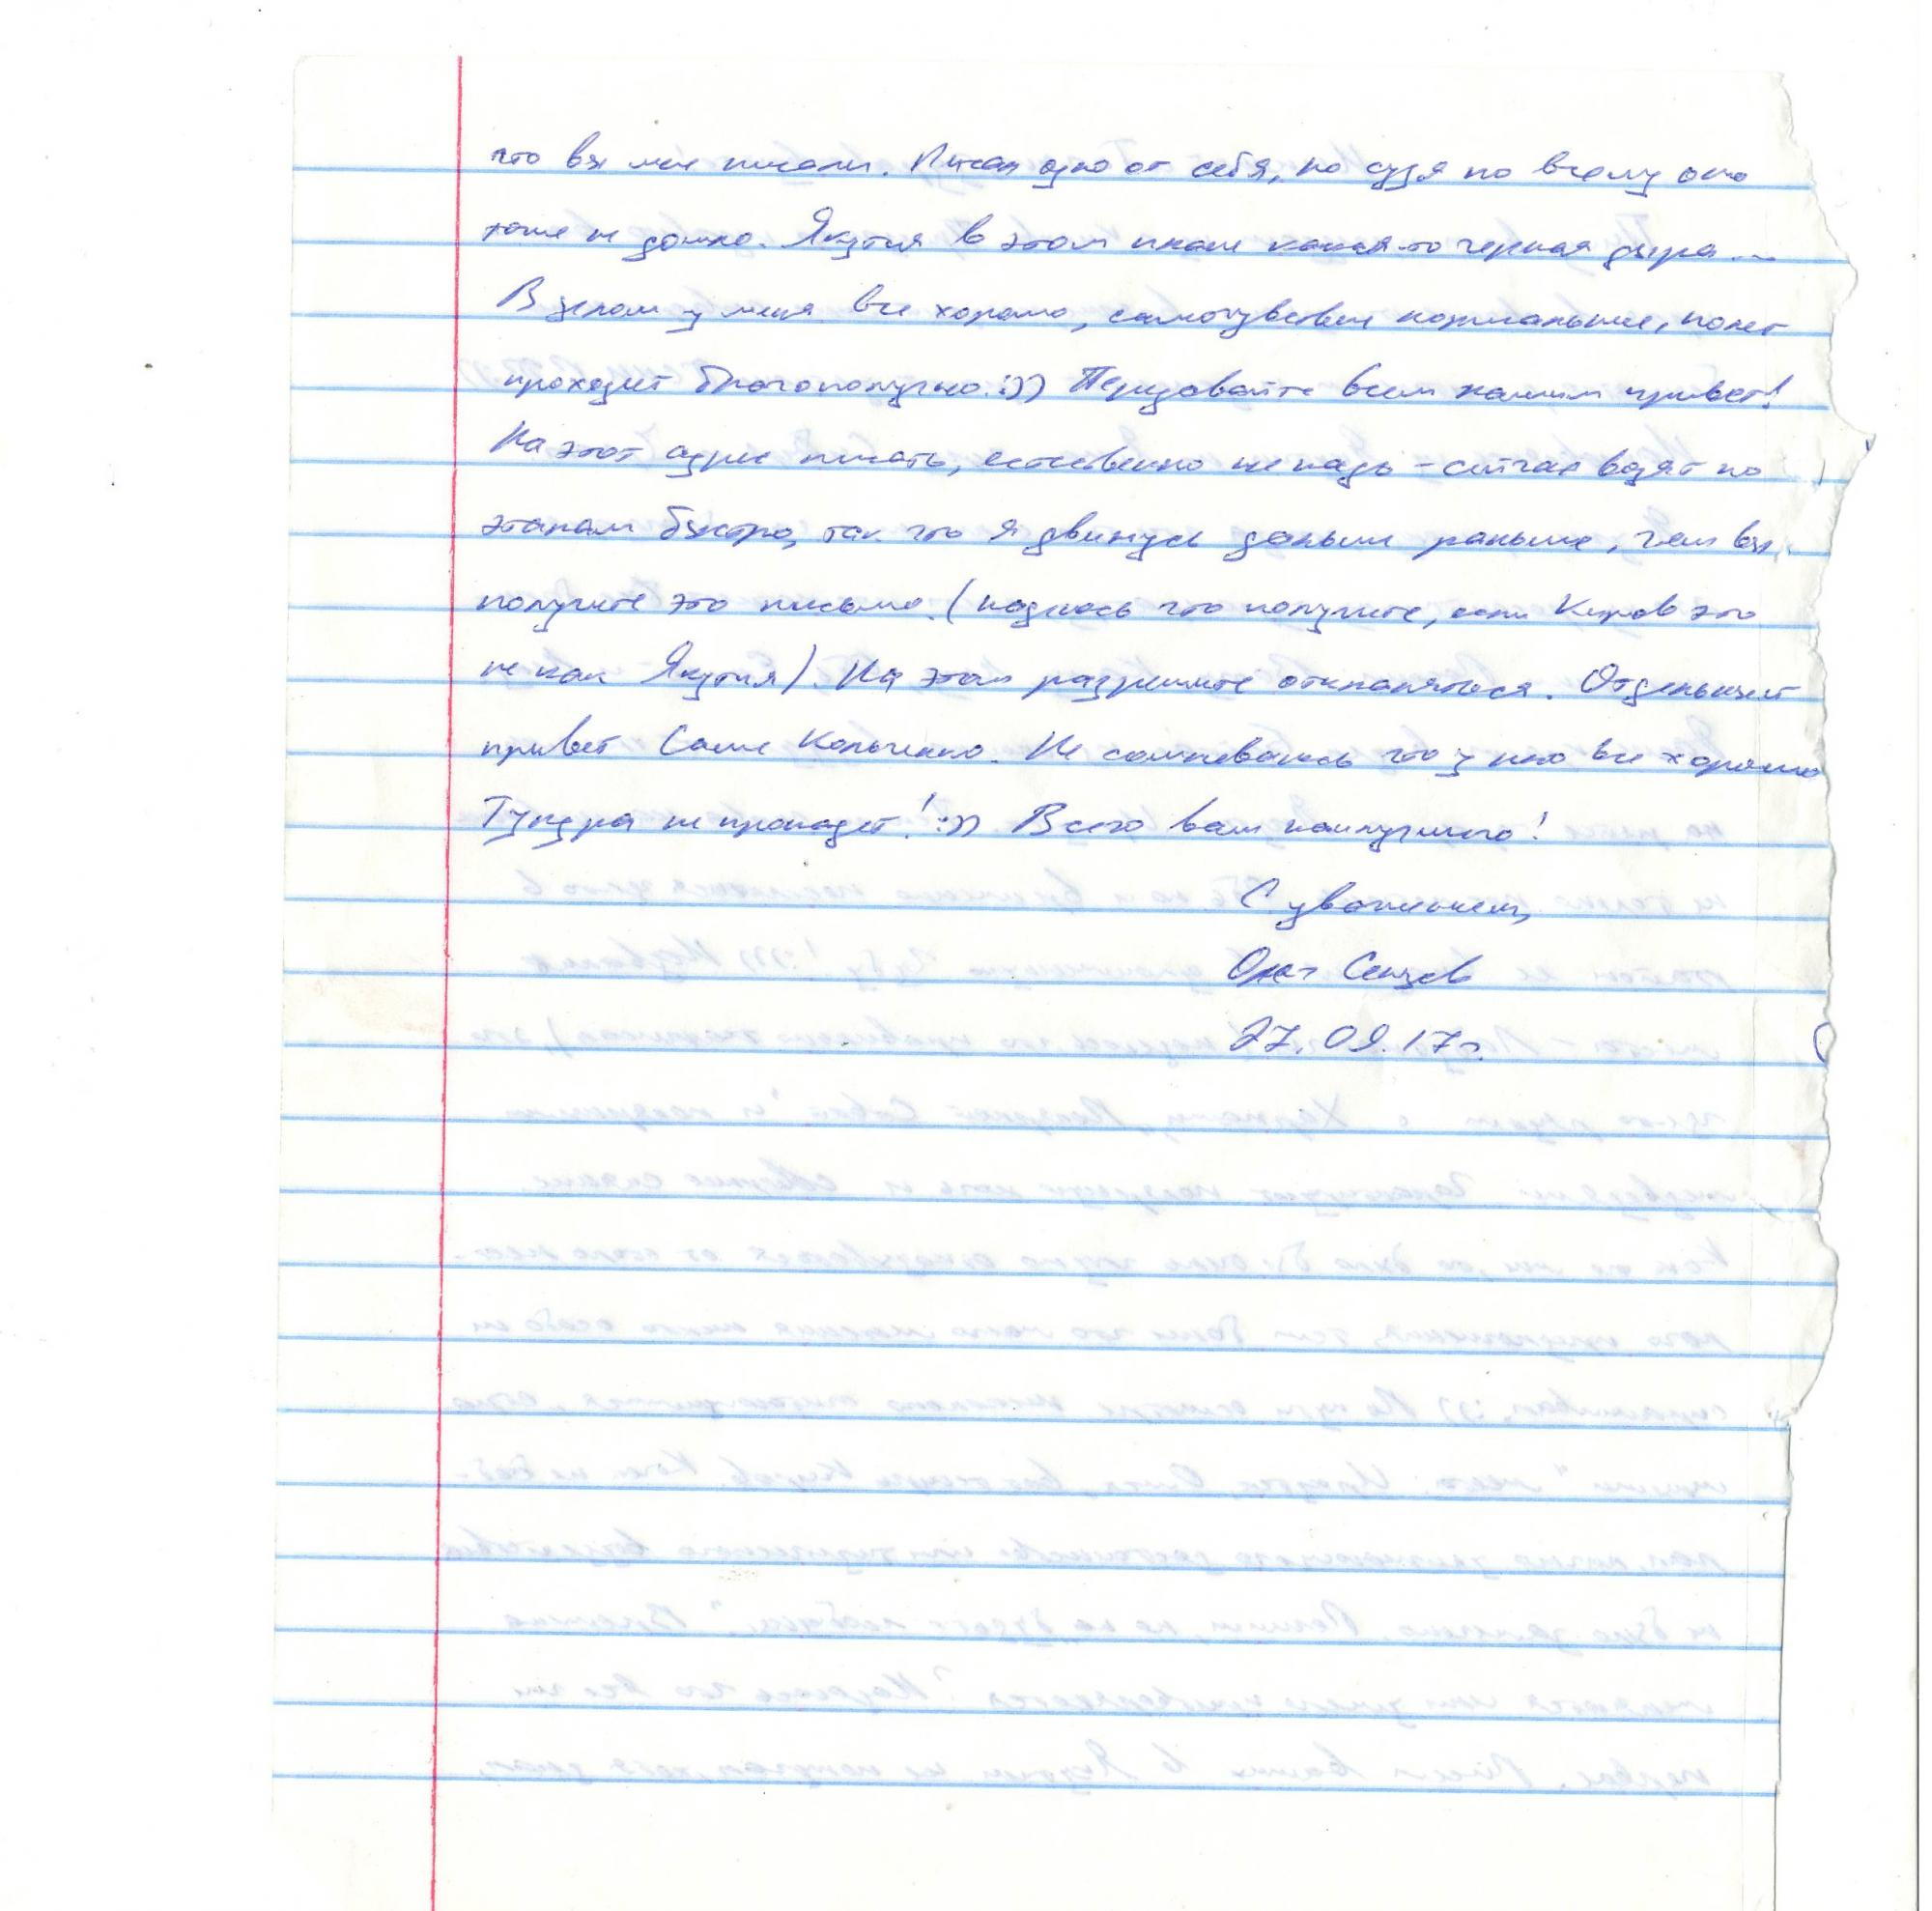 что вы мне писали. Писал одно от себя, но судя по всему оно
тоже не дошло. Якутия в этом плане какая-то черная дыра...
В целом у меня все хорошо, самочувствие нормальное, полет
проходит благополучно :)) Передавайте всем нашим привет!
На этот адрес писать, естественно не надо - сейчас возят по
этапам быстро, так что я двинусь дальше раньше, чем вы
получите это письмо. (надеюсь что получите, если Киров это
не как Якутия). На этом разрешите откланяться. Отдельный
привет Саше Кольченко. Не сомневаюсь что у него все хорошо
Тундра не пропадет! :)) Всего вам наилучшего!
С уважением,
Олег Сенцов
27.09.17г.